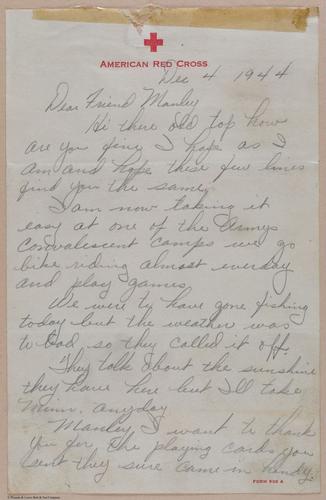 AMERICAN RED CROSS
Dec 4 1944
Dear Friend Manley
Hi there old top how
are you fine I hope as I
am and hope these few lines
find you the same.
I am now taking it
easy at one of the Armys
convalescent camps we go
bike riding almost everday
and play games
We were to have gone fishing
today but the weather was
to bad, so they called it off.
They talk about the sunshine
they have here but I'll take
Minn. anyday
Manley I want to thank
you for the playing cards you
sent they sure came in handy.
FORM 539 A